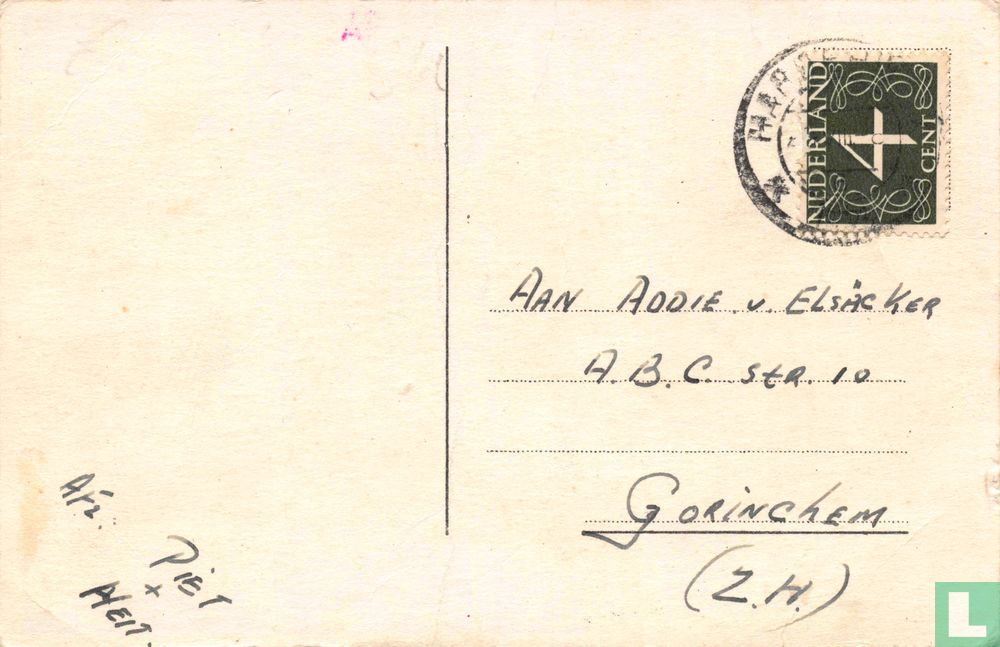 NEDERLAND
4
CENT
AAN ADDIE v. ELSÄCKER
A.B.C. STR. 10
GORINCHEM
(Z.H.)
Afz.
PIET
x
L